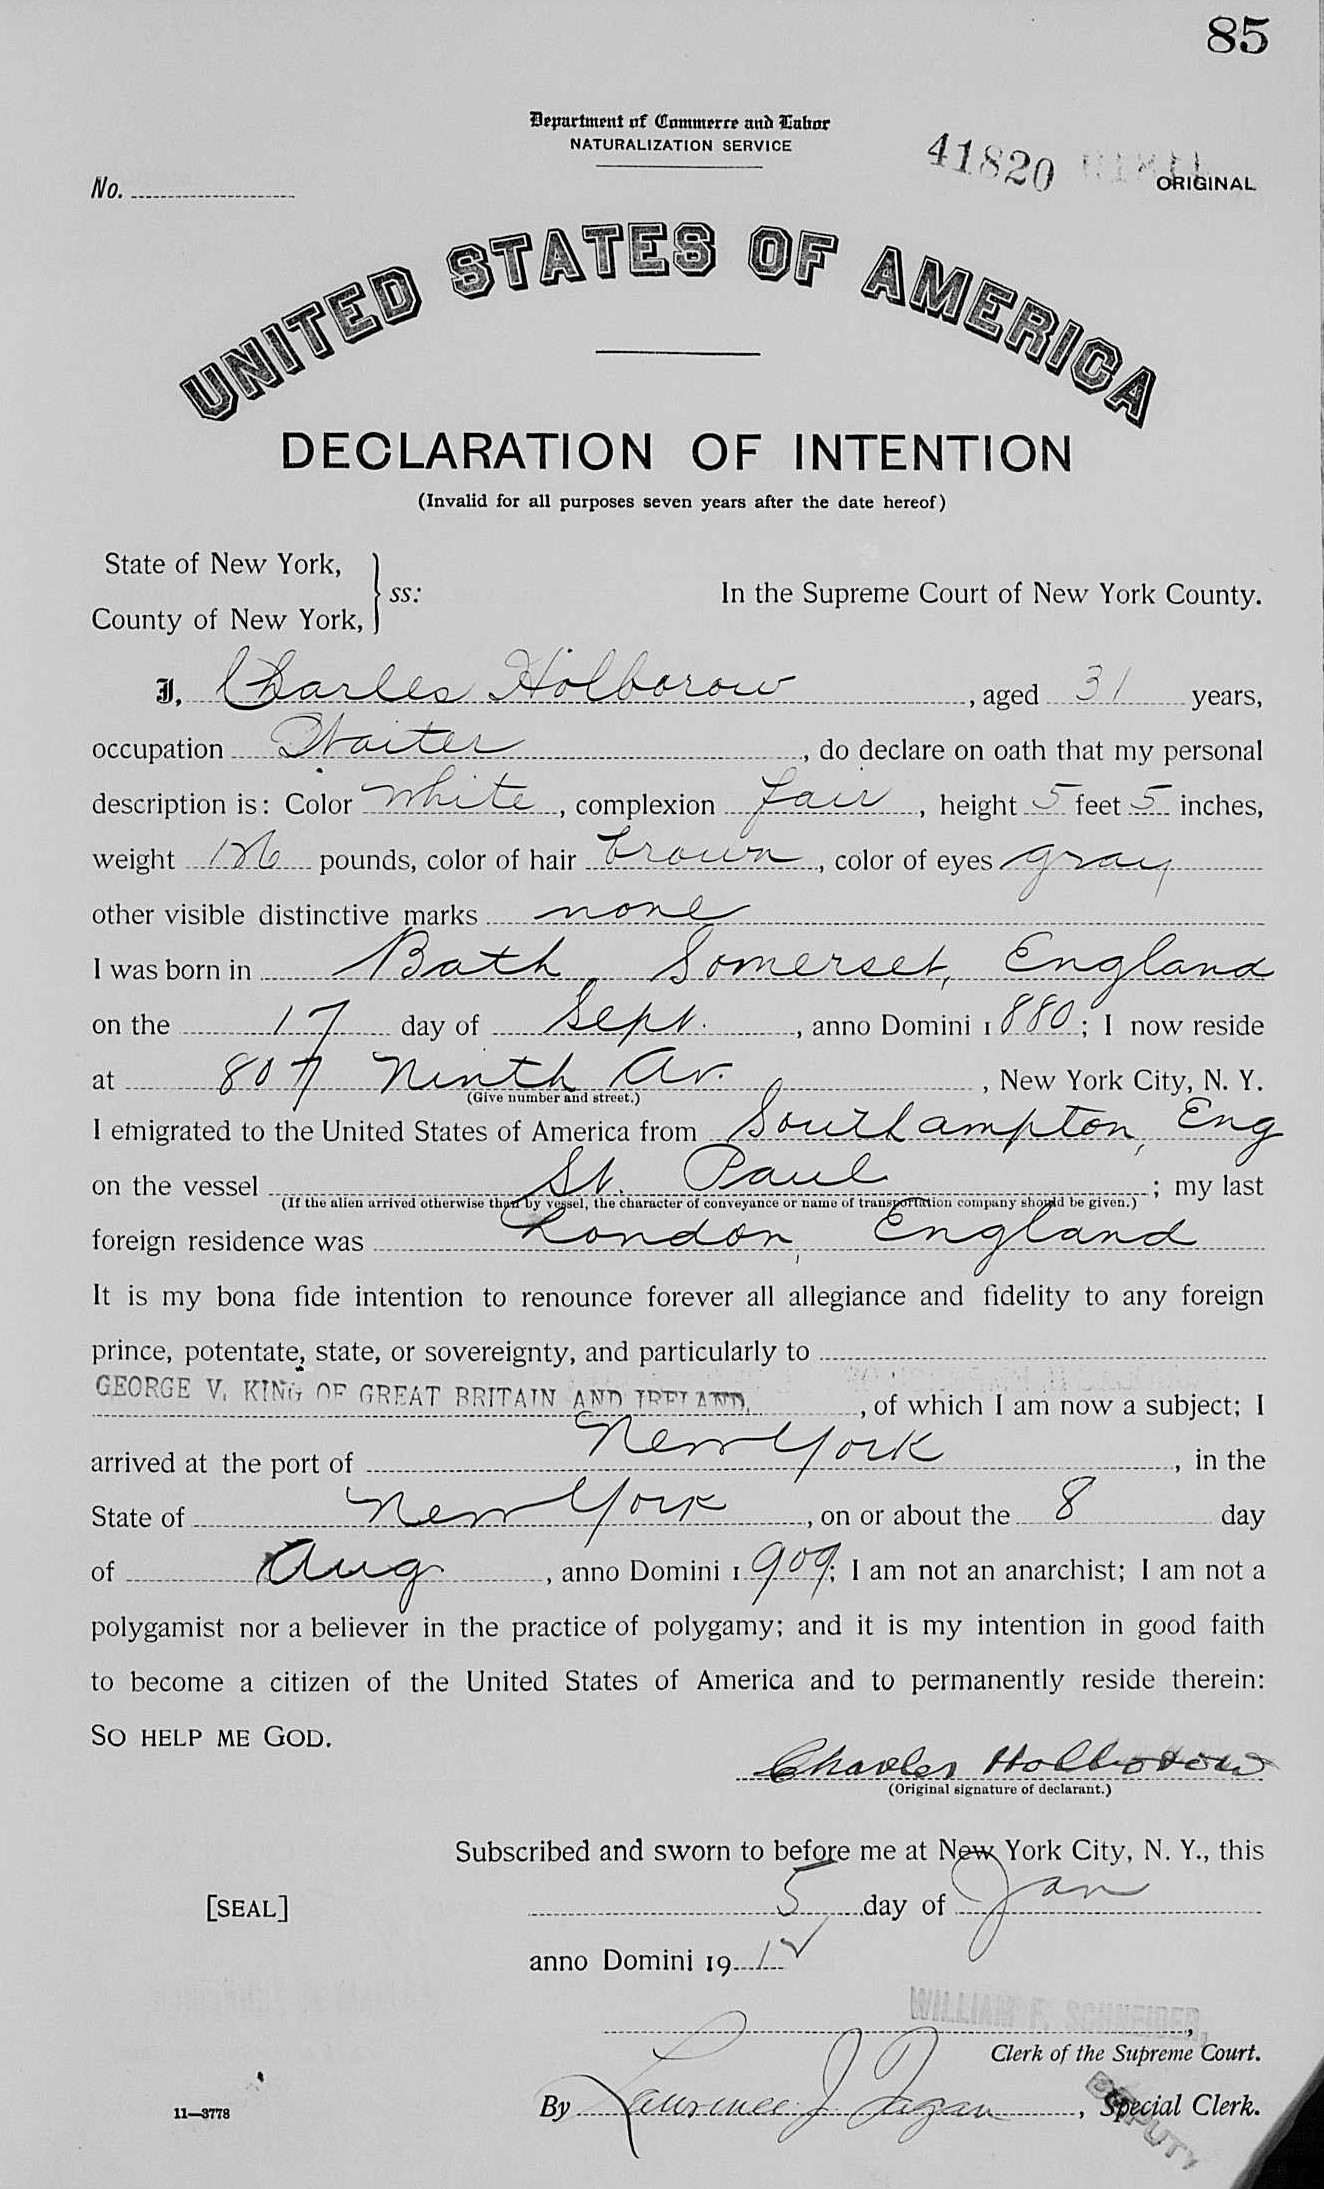 85
Department of Commerce and Labor
NATURALIZATION SERVICE
41820
No.
ORIGINAL
UNITED STATES OF AMERICA
DECLARATION OF INTENTION
(Invalid for all purposes seven years after the date hereof)
State of New York,
County of New York, } ss:
In the Supreme Court of New York County.
I, Charles Holborow, aged 31 years,
occupation Waiter, do declare on oath that my personal
description is: Color White, complexion fair, height 5 feet 5 inches,
weight pounds, color of hair brown, color of eyes gray
other visible distinctive marks none
I was born in Bath, Somerset, England
on the 17 day of Sept., anno Domini 1880; I now reside
at 807 Ninth Av., New York City, N. Y.
(Give number and street.)
I emigrated to the United States of America from Southampton, Eng
on the vessel St. Paul; my last
(If the alien arrived otherwise than by vessel, the character of conveyance or name of transportation company should be given.)
foreign residence was London, England
It is my bona fide intention to renounce forever all allegiance and fidelity to any foreign
prince, potentate, state, or sovereignty, and particularly to
GEORGE V, KING OF GREAT BRITAIN AND IRELAND, of which I am now a subject; I
arrived at the port of New York, in the
State of New York, on or about the 8 day
of Aug, anno Domini 1909; I am not an anarchist; I am not a
polygamist nor a believer in the practice of polygamy; and it is my intention in good faith
to become a citizen of the United States of America and to permanently reside therein:
SO HELP ME GOD.
Charles Holborow
(Original signature of declarant.)
Subscribed and sworn to before me at New York City, N. Y., this
[SEAL]
5 day of Jan
anno Domini 1912
WILLIAM F. SCHNEIDER,
Clerk of the Supreme Court.
By Lawrence J. Fagan, Special Clerk.
DEPUTY
11—3778